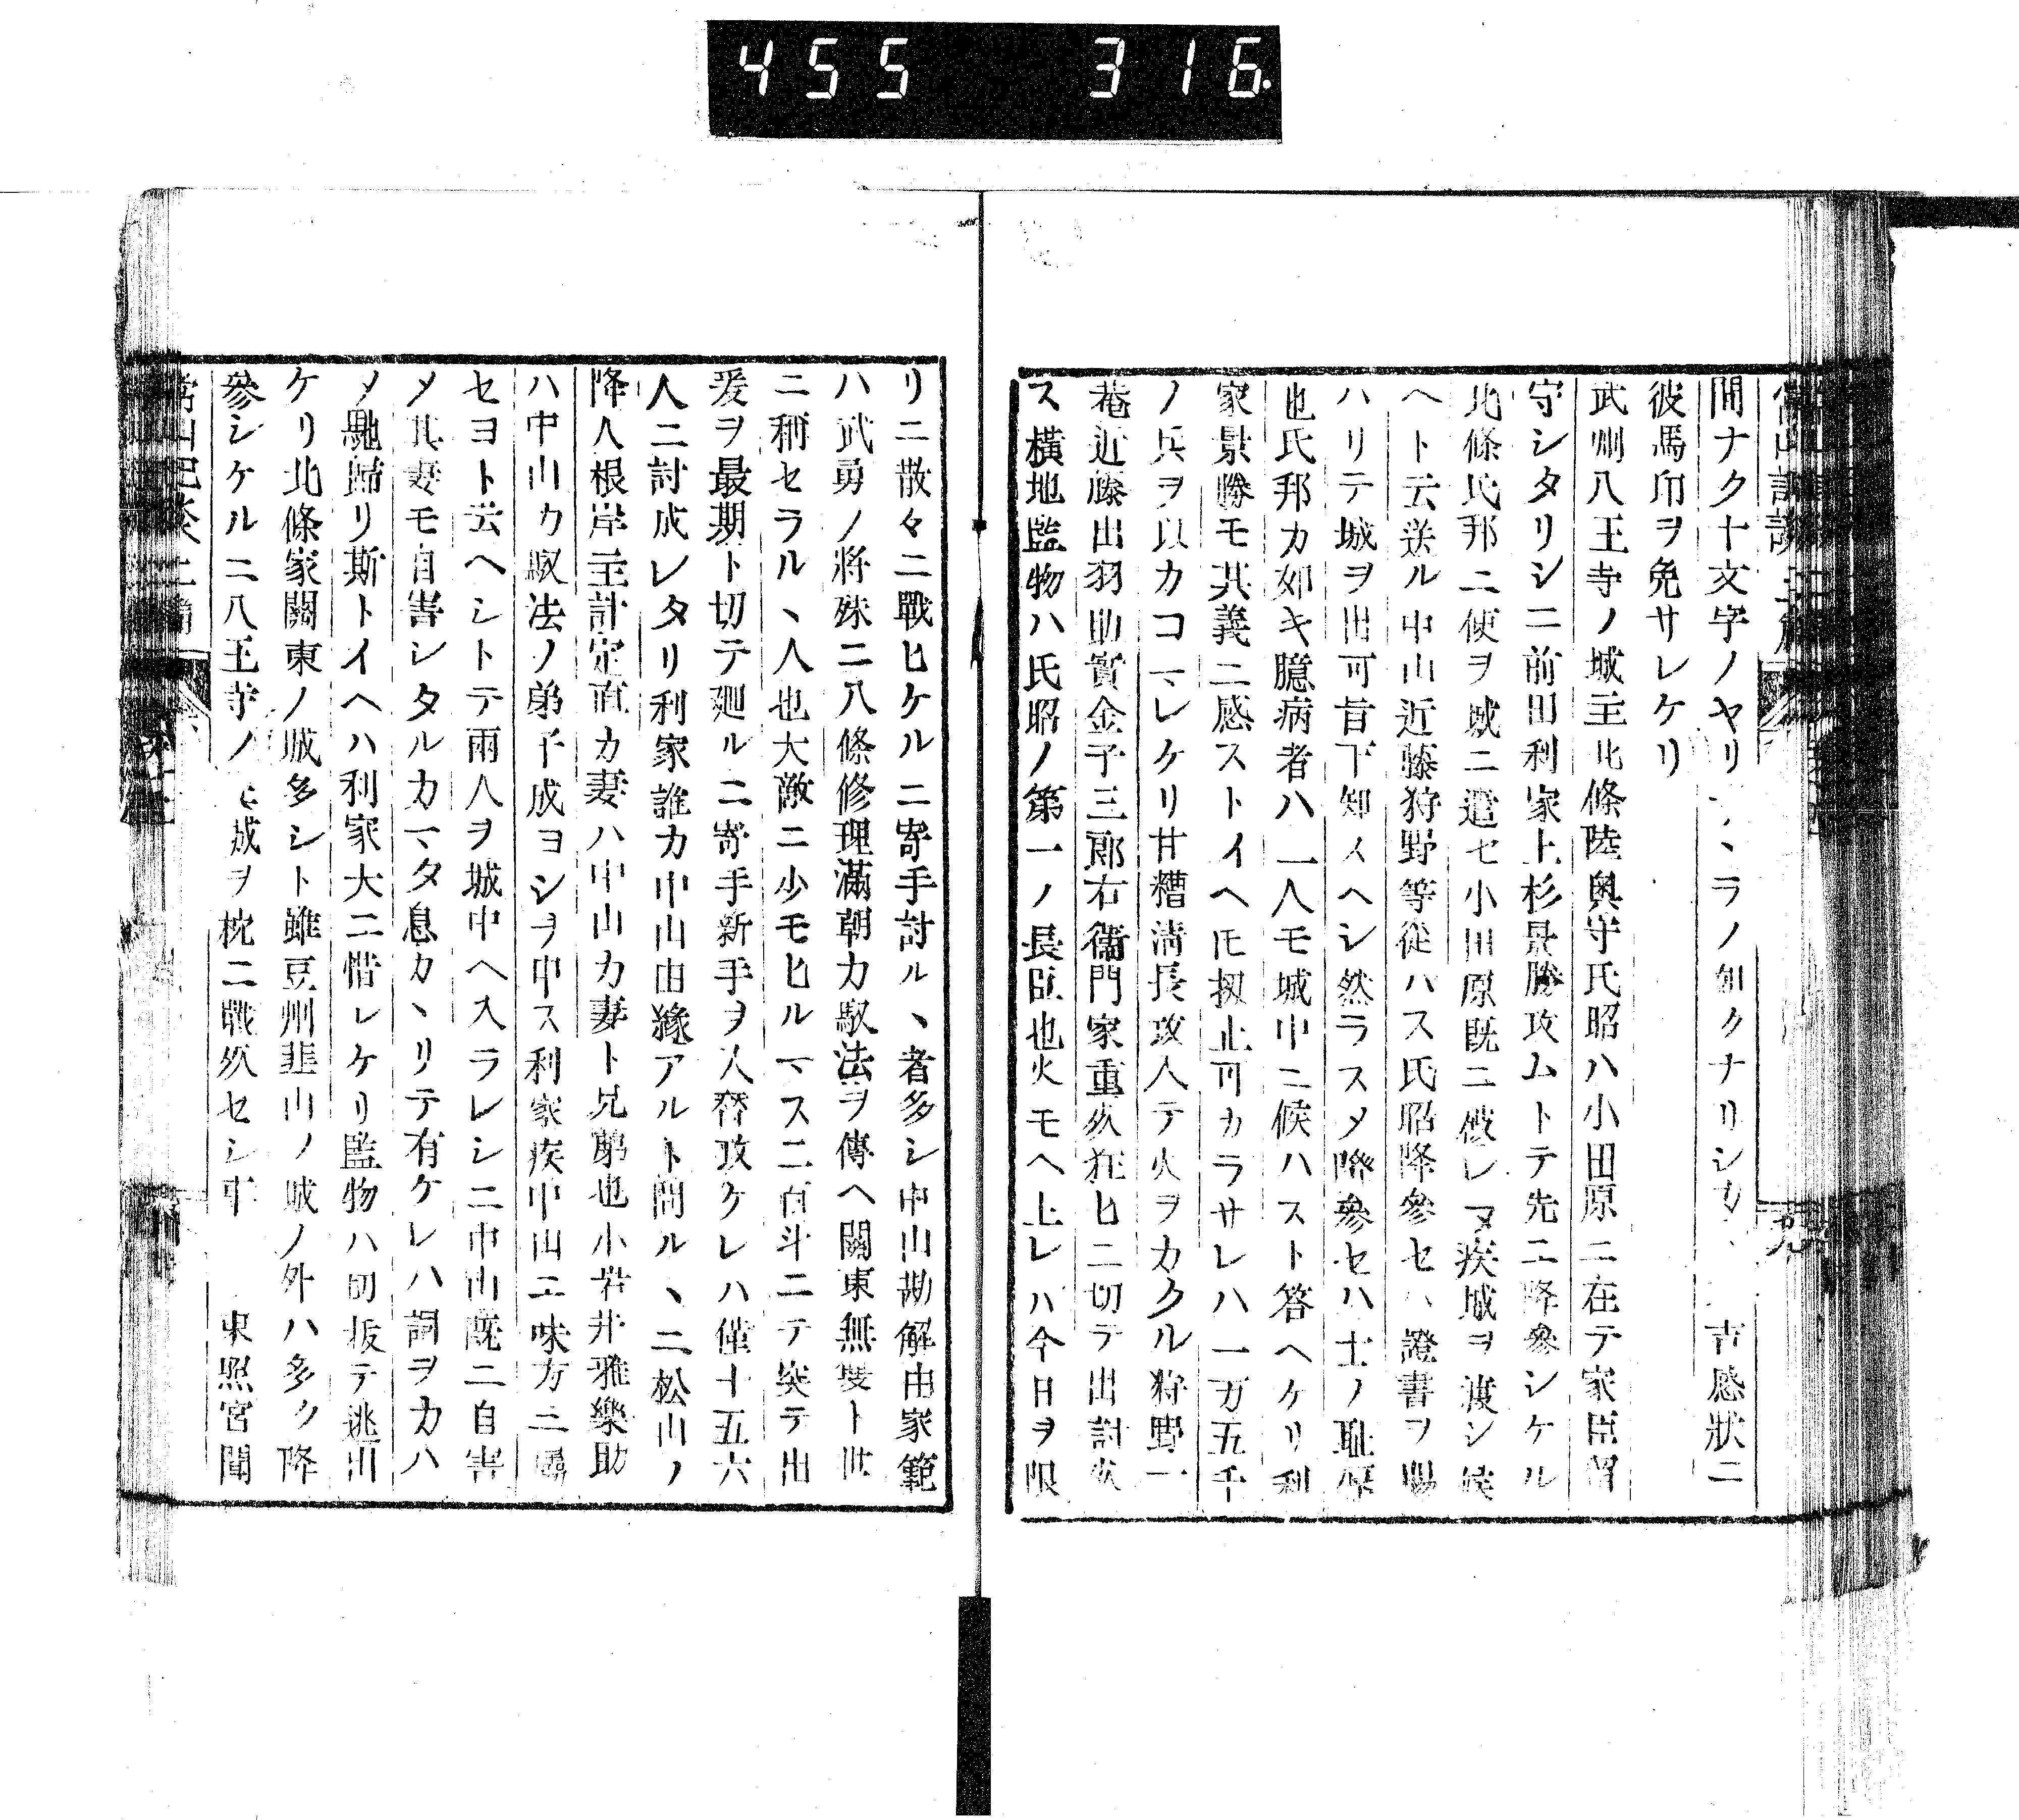 455 316.
間ナク十文字ノヤリ ラノ如クナリシ 吉感狀ニ
彼馬印ヲ免サレケリ
武州八王寺ノ城主北條陸奥守氏昭ハ小田原ニ在テ家臣留
守シタリシニ前田利家上杉景勝攻ムトテ先ニ降參シケル
北條氏邦ニ使ヲ城ニ遣セ小田原既ニ破レヌ疾城ヲ渡シ候
ヘト云送ル中山近藤狩野等從ハス氏昭降參セハ證書ヲ賜
ハリテ城ヲ出可旨下知スヘシ然ラスメ降參セハ士ノ耻辱
也氏邦カ如キ臆病者ハ一人モ城中ニ候ハスト答ヘケリ利
家景勝モ其義ニ感ストイヘ𪜈扨止可カラサレハ一万五千
ノ兵ヲ以カコマレケリ甘糟淸長攻入テ火ヲカクル狩野一
菴近藤出羽助實金子三郎右衞門家重火狂ヒニ切テ出討火
ス橫地監物ハ氏昭ノ第一ノ長臣也火モヘ上レハ今日ヲ限
リニ散々ニ戰ヒケルニ寄手討ルヽ者多シ中山勘解由家範
ハ武勇ノ將殊ニ八條修理滿朝カ馭法ヲ傳ヘ關東無雙ト世
ニ稱セラルヽ人也大敵ニ少モヒルマス二百斗ニテ突テ出
爰ヲ最期ト切テ廻ルニ寄手新手ヲ入替攻ケレハ僅十五六
人ニ討成レタリ利家誰カ中山由緣アルト問ルヽニ松山ノ
降人根岸主計定直カ妻ハ中山カ妻ト兄弟也小岩井雅樂助
ハ中山カ馭法ノ弟子成ヨシヲ申ス利家疾中山ニ味方ニ屬
セヨト云ヘシトテ兩人ヲ城中ヘ入ラレシニ中山既ニ自害
メ其妻モ自害シタルカマタ息カヽリテ有ケレハ詞ヲカハ
メ馳歸リ斯トイヘハ利家大ニ惜レケリ監物ハ切拔テ逃出
ケリ北條家關東ノ城多シト雖豆州韮山ノ城ノ外ハ多ク降
參シケルニ八王寺ノ 城ヲ枕ニ戰死セシ事 東照宮聞
常山紀談